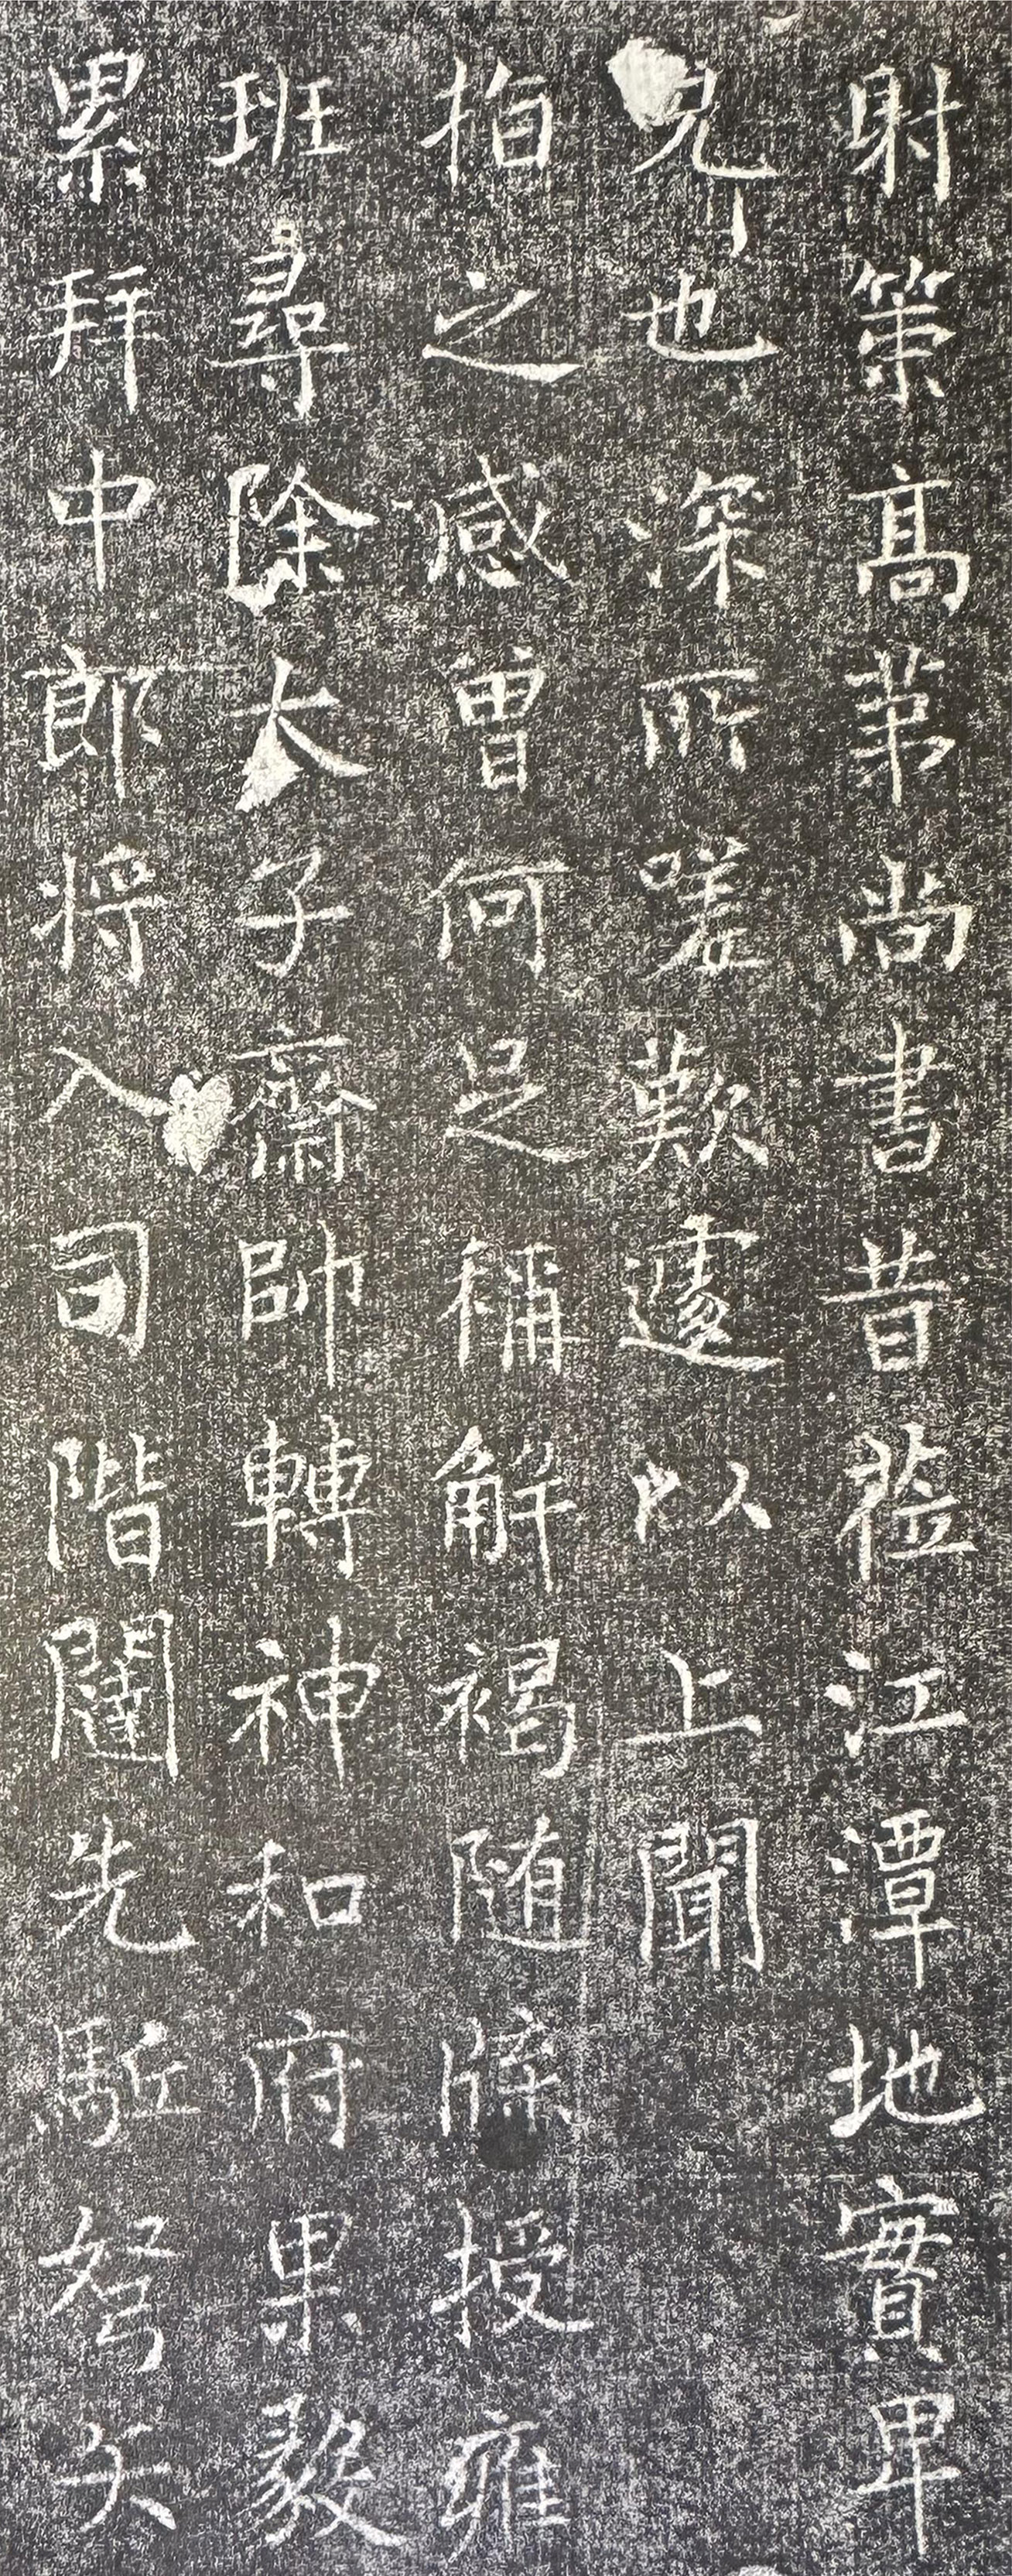 射策高第尚書昔莅江潭地實卑
見也深所嗟歎遽以上聞
指之感曾何足稱解褐随牒授雍
班尋除太子齋帥轉神和府果毅
累拜中郎将入司階闥先駈弩矢